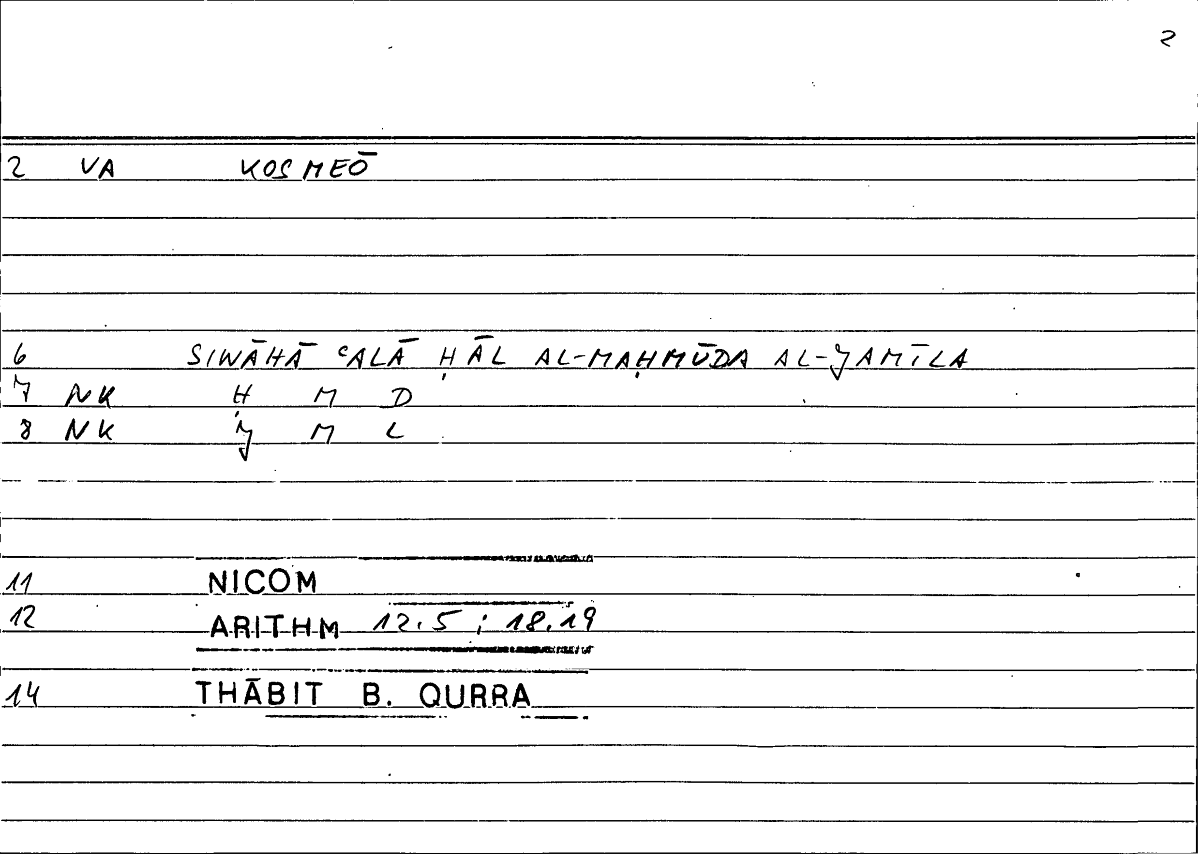 2
2 VA KOSMEŌ
6 SIWĀHĀ ᶜALĀ ḤĀL AL-MAḤMŪDA AL-JAMĪLA
7 NK Ḥ M D
8 NK J M L
11 NICOM
12 ARITHM 12.5 ; 18.19
14 THĀBIT B. QURRA